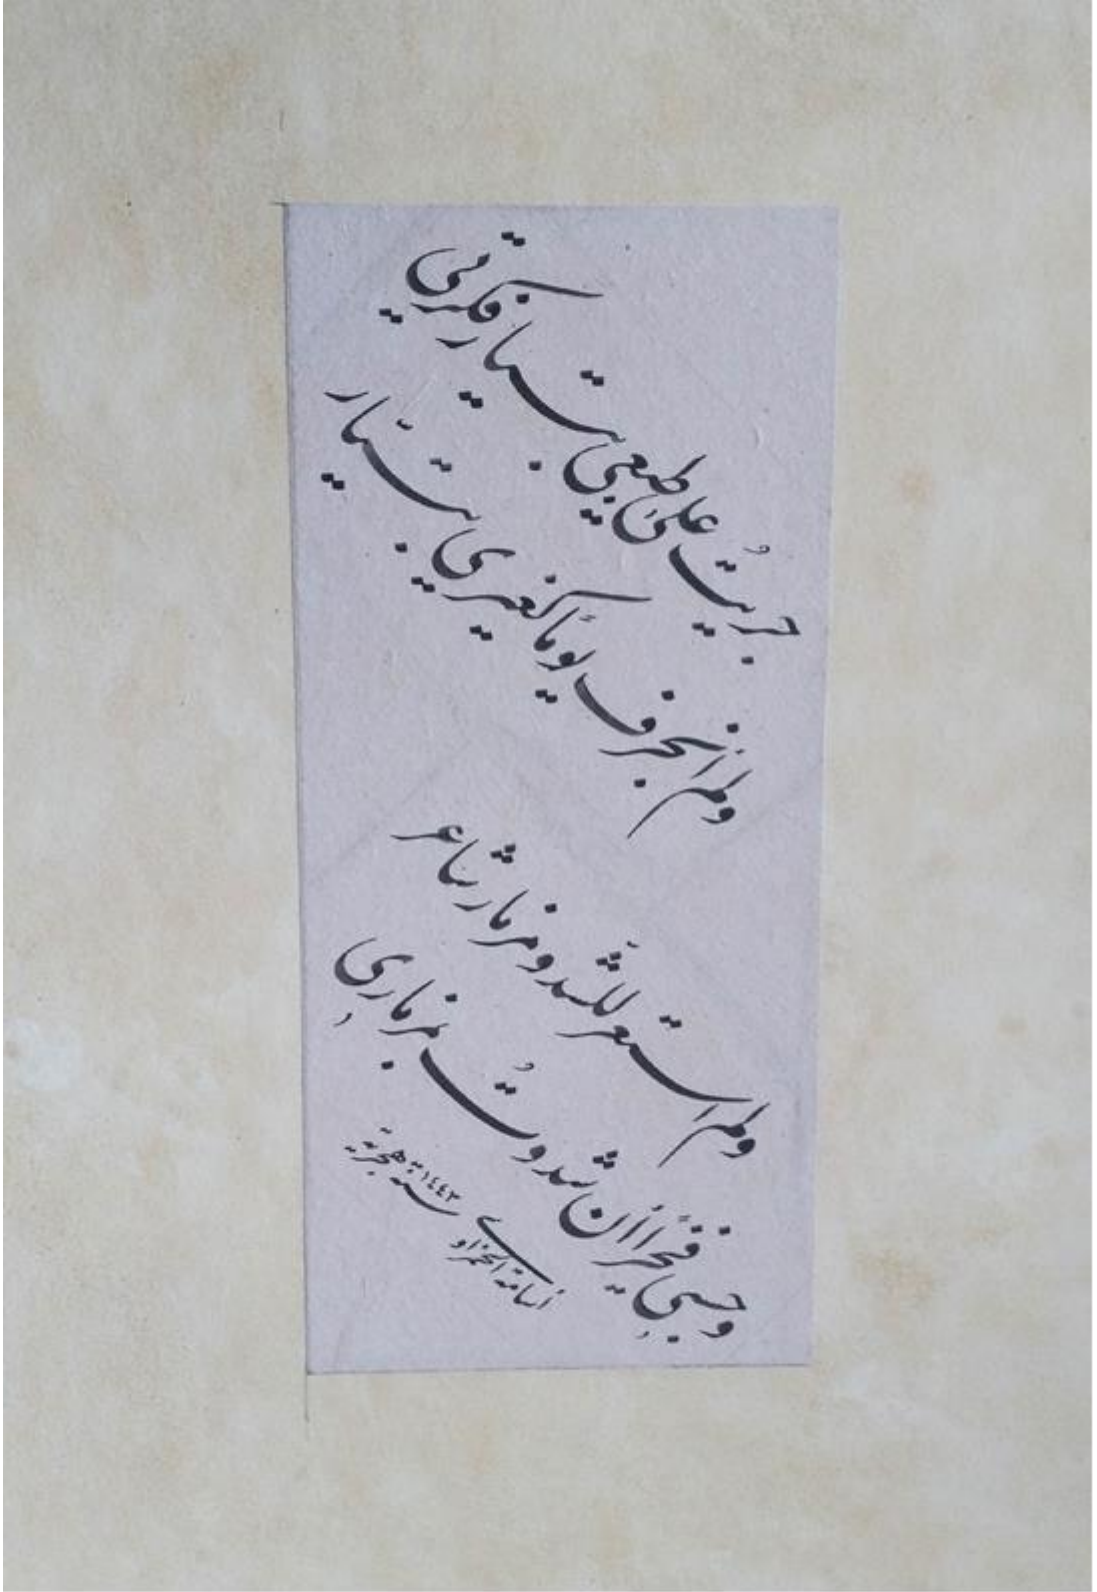 جريتُ على طبعي بتيار فكرتي
ولم أنجرف يوماً كغيري بتيّار
ولم أستعر للشّدو مزمار شاعر
وحسبي فخراً أن شدوتُ بمزماري
أسامة الحمزاوي
سنة ١٤٤٣ هجرية